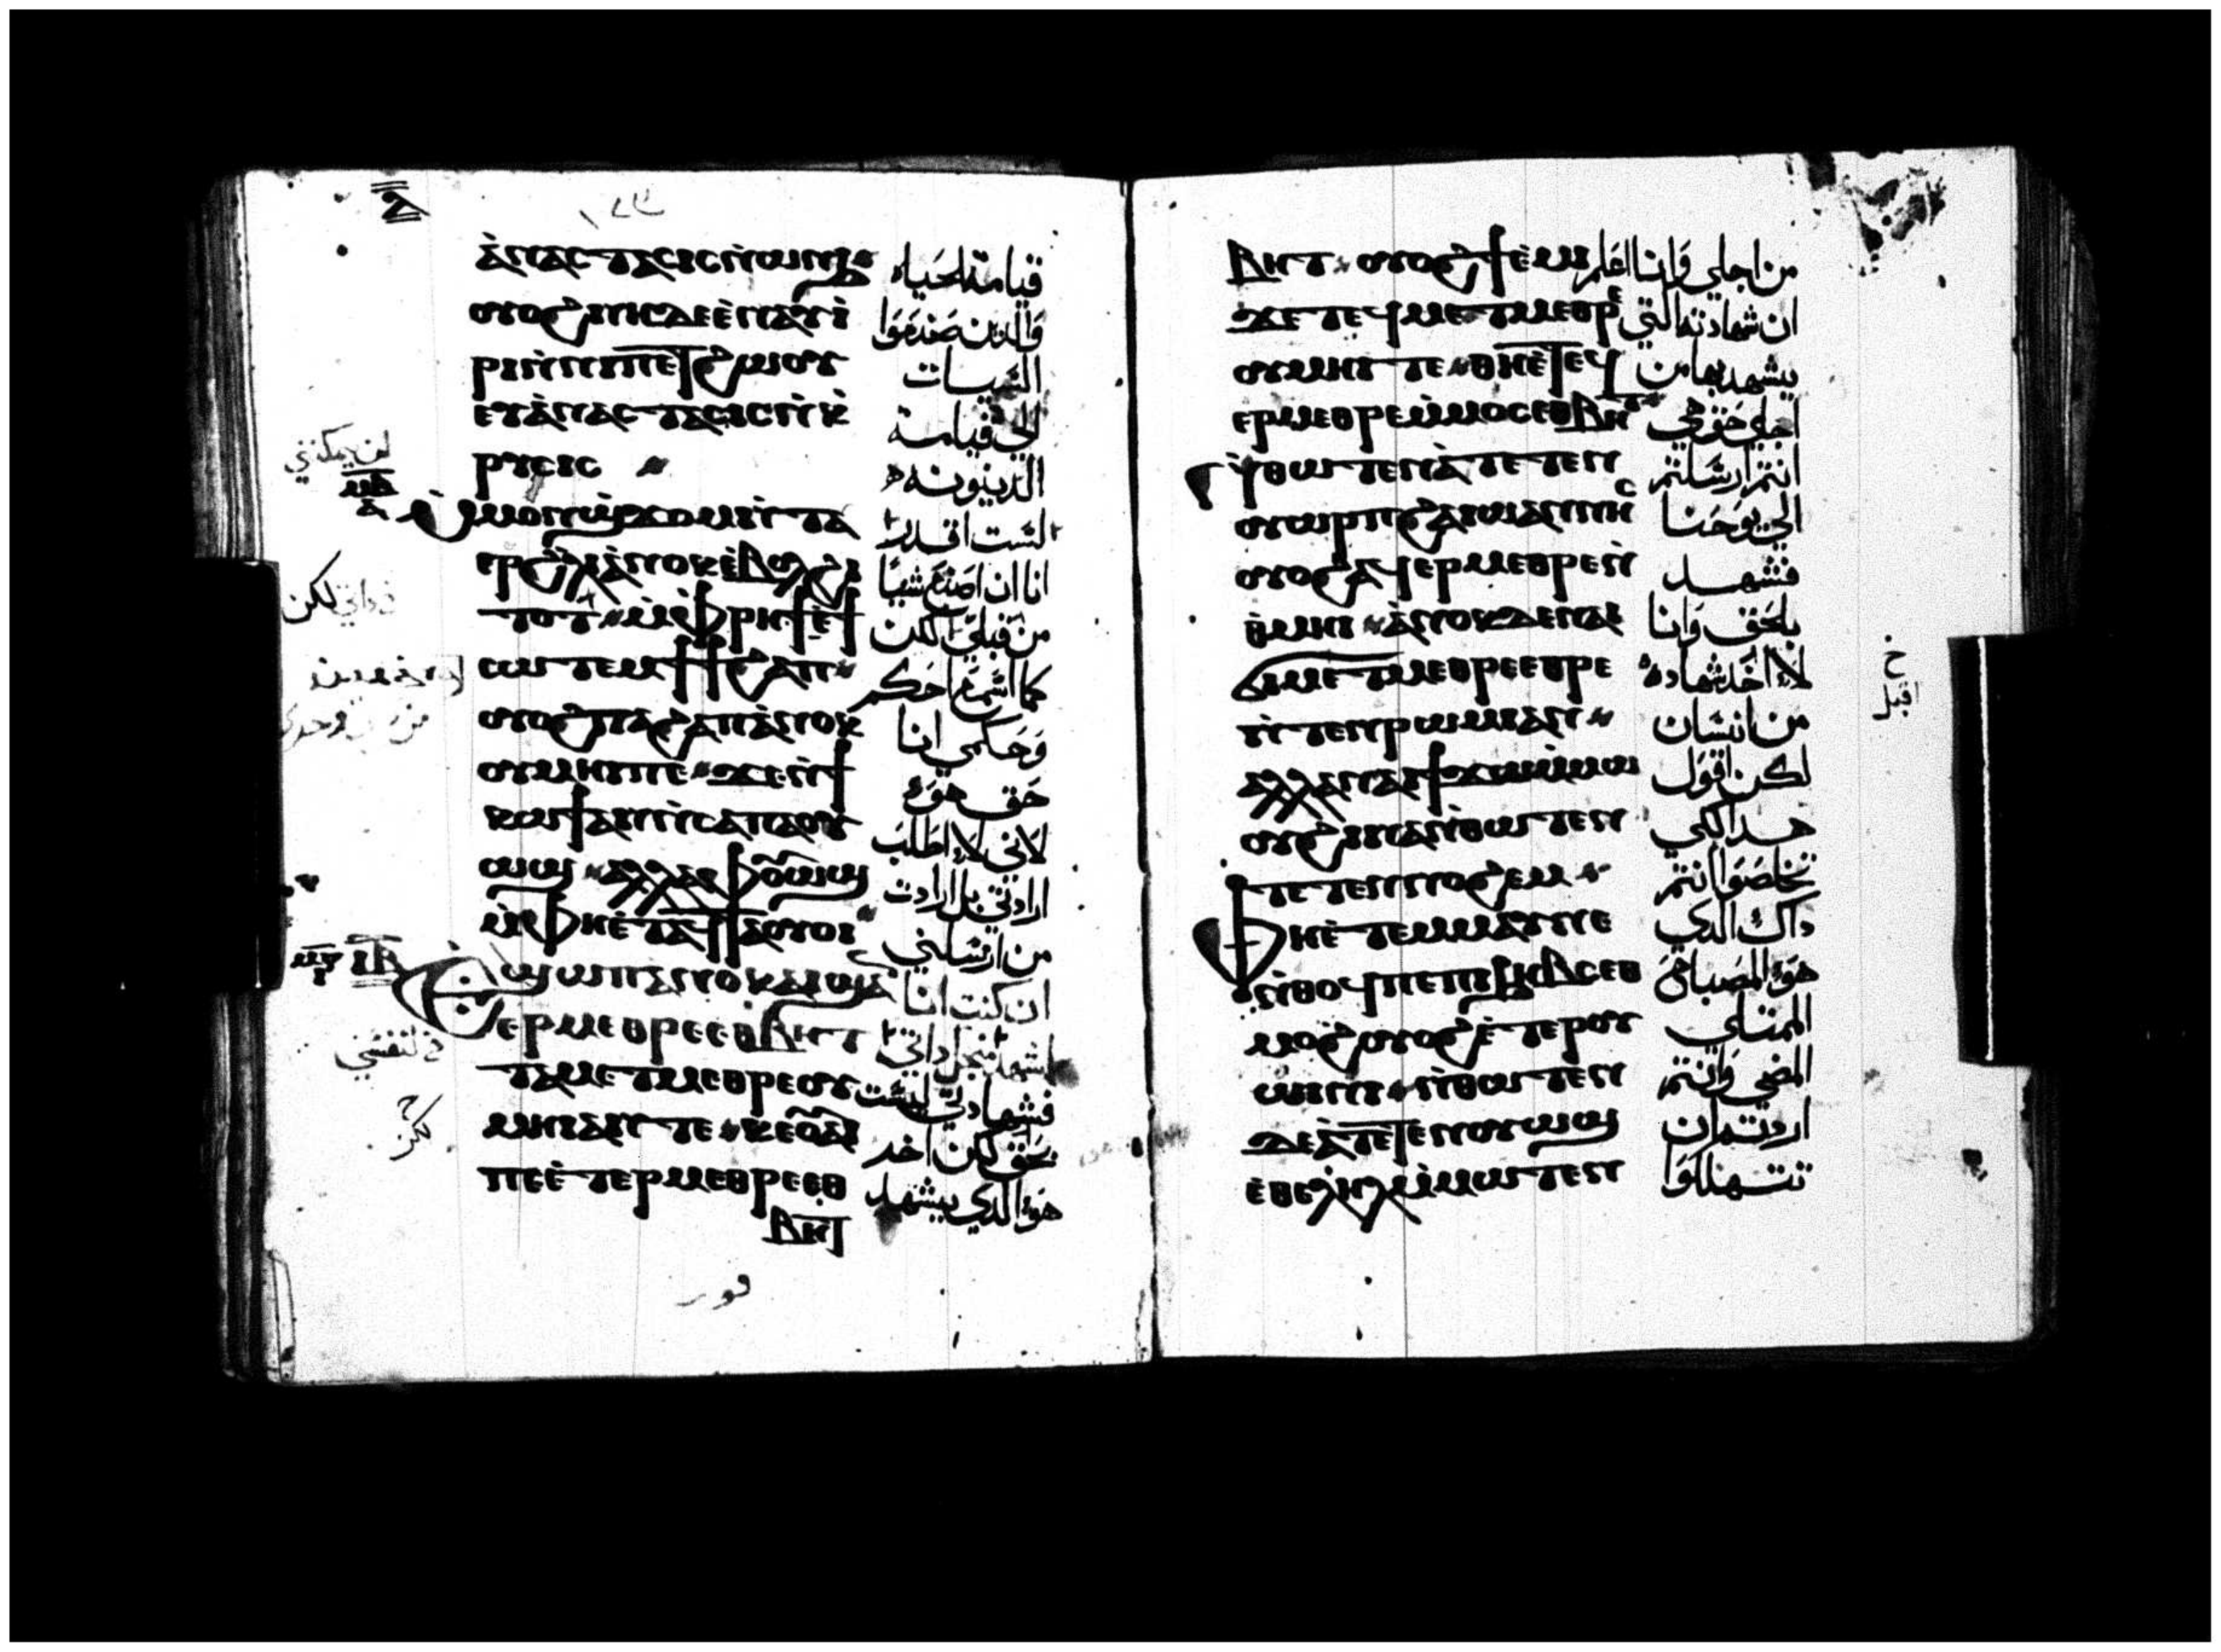 ⲁ̀ⲛⲁⲥⲧⲁⲥⲓⲥⲛ̀ⲱⲛϧ قيامة الحياه
ⲟⲩⲟϩⲛⲏⲇⲉⲉ̀ⲧⲁⲩⲓ̀ والدين صنعوا
ⲣⲓⲛ̀ⲛⲓⲡⲉⲧϩⲱⲟⲩ السيات
ⲉⲩⲁ̀ⲛⲁⲥⲧⲁⲥⲓⲥⲛ̀ⲕ̀ الي قيامة
ⲣⲩⲥⲓⲥ الدينونه
ⲙ̀ⲙⲟⲛϣϫⲟⲙⲛ̀ⲧⲁ لست اقدر
ⲉⲣϩⲗⲓⲁ̀ⲛⲟⲕⲉ̀ⲃⲟⲗϩⲓ انا ان اصنع شيا
ⲧⲟⲧ ⲙ̀ⲫⲣⲏϯⲉ̀ϯ من قبلي لكن
ⲥⲱⲧⲉⲙϯϯϩⲁⲡ كما اسمع احكم
ⲟⲩⲟϩⲡⲁϩⲁⲡⲁ̀ⲛⲟⲕ وحكمي انا
ⲟⲩⲙⲏⲓⲡⲉ ϫⲉⲛ̀ϯ حق هو
ⲕⲱϯⲁⲛⲛ̀ⲥⲁⲡⲁⲟⲩ لاني لا اطلب
ⲱϣ ⲁⲗⲗⲁⲫⲟⲩⲱϣ ارادتي بل ارادت
ⲙ̀ⲫⲏⲉ̀ⲧⲁϥⲧⲁⲟⲩⲟⲓ من ارسلني
ⲉϣⲱⲡⲁⲛⲟⲕⲁⲓϣⲁⲛ ان كنت انا
ⲉⲣⲙⲉⲑⲣⲉⲉⲑⲃⲏⲧ اشهد من اجل داتي
ⲧⲁⲙⲉⲧⲙⲉⲑⲣⲉⲟⲩ فشهادتي ليست
ⲙⲏⲓⲁⲛⲧⲉ ⲕⲉⲟⲩⲁⲓ بحق لكن اخر
ⲡⲉⲉ̀ⲧⲉⲣⲙⲉⲑⲣⲉⲉⲑ هو الدي يشهد
ⲃⲏⲧ
ⲃⲏⲧ ⲟⲩⲟϩϯⲉ̀ⲙⲓ من اجلي وانا اعلم
ϫⲉⲧⲉϥⲙⲉⲧⲙⲉⲑⲣⲉ ان شهادته التي
ⲟⲩⲙⲏⲓⲧⲉ ⲑⲏⲉ̀ⲧⲉϥ يشهد بها من
ⲉⲣⲙⲉⲑⲣⲉⲙ̀ⲙⲟⲥⲉⲑⲃⲏⲧ اجلي حق هي
ⲛ̀ⲑⲱⲧⲉⲛⲁ̀ⲧⲉⲧⲉⲛ انتم ارسلتم
ⲟⲩⲱⲣⲡϩⲁⲓⲱⲁⲛⲛⲏⲥ الي يوحنا
ⲟⲩⲟϩⲁϥⲉⲣⲙⲉⲑⲣⲉⲛ̀ فشهد
ⲑ̀ⲙⲏⲓ ⲁ̀ⲛⲟⲕⲇⲉⲛⲁⲓ بلحق وانا
ϭⲓⲙⲉⲧⲙⲉⲑⲣⲉⲉⲑⲣⲉ لا اخد شهاده
ⲛ̀ⲧⲉⲛⲣⲱⲙⲓⲁⲛ من انسان
ⲁⲗⲗⲁⲛⲁⲓϯϫⲱⲙ̀ⲙⲱ لكن اقول
ⲟⲩϩⲓⲛⲁⲛ̀ⲑⲱⲧⲉⲛ هدا لكي
ⲧⲉⲧⲉⲛⲛⲟϩⲉⲙ تخلصوا انتم
ⲫⲏⲉ̀ⲧⲉⲙⲙⲁⲩⲛⲉ داك الدي
ⲛ̀ⲑⲟϥⲡⲉⲡⲓϧⲏⲃⲥⲉⲑ هو المصباح
ⲙⲟϩⲟⲩⲟϩⲉ̀ⲧⲉⲣⲟⲩ الممتلي
ⲱⲓⲛⲓ ⲛ̀ⲑⲱⲧⲉⲛ المضي وانتم
ⲇⲉⲁ̀ⲧⲉⲧⲉⲛⲟⲩⲱϣ اردتم ان
ⲉ̀ⲑⲉⲗⲏⲗⲙ̀ⲙⲱⲧⲉⲛ تتهللوا